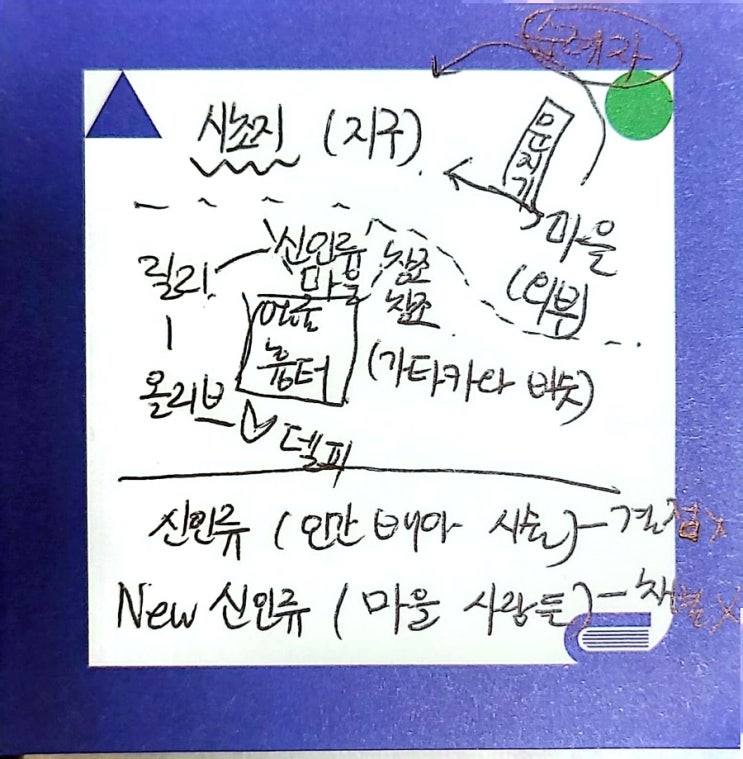 순례자
시초지 (지구)
문지기
마을
(외부)
릴리
신인류
마을
창조
창조
얼굴
흉터
(가타카와 비슷)
올리브
델피
신인류 (인간 배아 시술) - 결점X
New 신인류 (마을 사람들) - 차별X